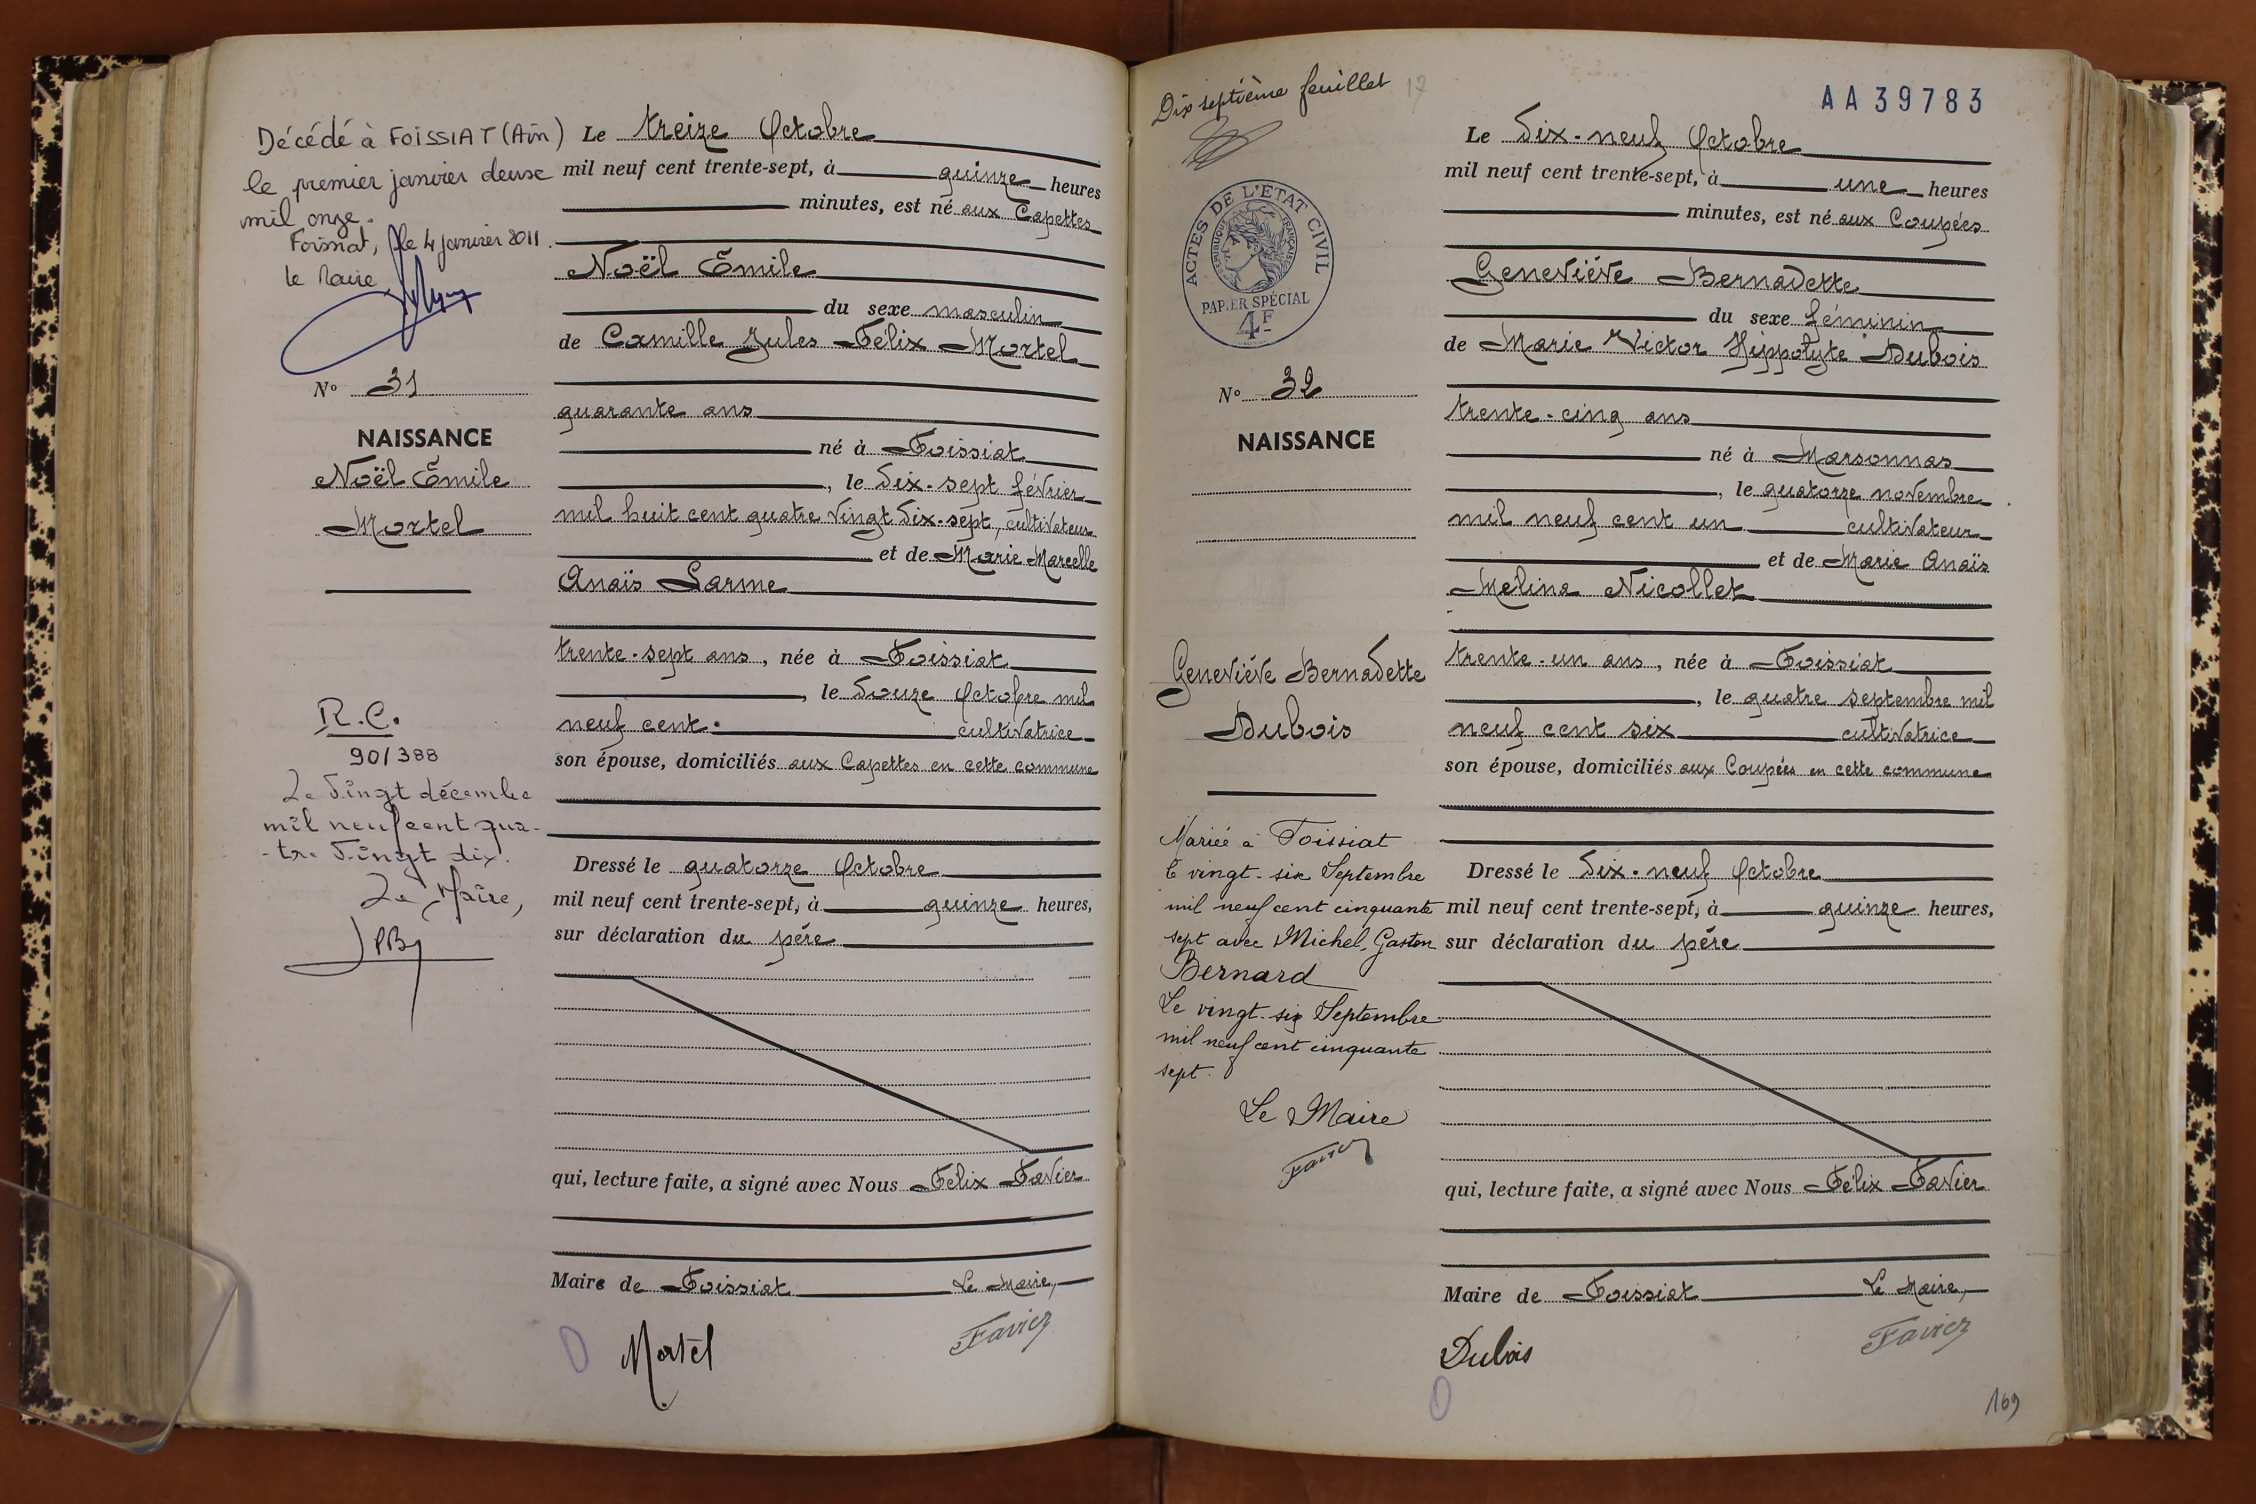 Décédé à FOISSIAT (Ain)
le premier janvier deux
mil onze.
Foissiat, le 4 janvier 2011.
le Maire
N° 31
NAISSANCE
Noël Émile
Mortel
R.C.
90/388
Le vingt décembre
mil neuf cent qua-
-tre vingt dix.
Le Maire,
Le treize Octobre
mil neuf cent trente-sept, à quinze heures
minutes, est né aux Capettes
Noël Émile
du sexe masculin
de Camille Jules Félix Mortel
quarante ans
né à Foissiat
, le dix-sept février
mil huit cent quatre vingt dix-sept, cultivateur
et de Marie Marcelle
Anaïs Larme
trente-sept ans, née à Foissiat
, le douze Octobre mil
neuf cent. cultivatrice
son épouse, domiciliés aux Capettes en cette commune
Dressé le quatorze Octobre
mil neuf cent trente-sept, à quinze heures,
sur déclaration du père
qui, lecture faite, a signé avec Nous Félix Favier
Maire de Foissiat Le Maire,
Mortel Favier
Dix septième feuillet 17
ACTES DE L'ETAT CIVIL
REPUBLIQUE FRANÇAISE
PAPIER SPÉCIAL
4F
N° 32
NAISSANCE
Geneviève Bernadette
Dubois
Mariée à Foissiat
le vingt-six Septembre
mil neuf cent cinquante
sept avec Michel, Gaston
Bernard
Le vingt-six Septembre
mil neuf cent cinquante
sept.
Le Maire
Favier
AA39783
Le dix-neuf Octobre
mil neuf cent trente-sept, à une heures
minutes, est né aux Coupées
Geneviève Bernadette
du sexe féminin
de Marie Victor Hyppolyte Dubois
trente-cinq ans
né à Marsonnas
, le quatorze novembre
mil neuf cent un cultivateur
et de Marie Anaïs
Melina Nicollet
trente-un ans, née à Foissiat
, le quatre septembre mil
neuf cent six cultivatrice
son épouse, domiciliés aux Coupées en cette commune
Dressé le dix-neuf Octobre
mil neuf cent trente-sept, à quinze heures,
sur déclaration du père
qui, lecture faite, a signé avec Nous Félix Favier
Maire de Foissiat Le Maire,
Dubois Favier
169